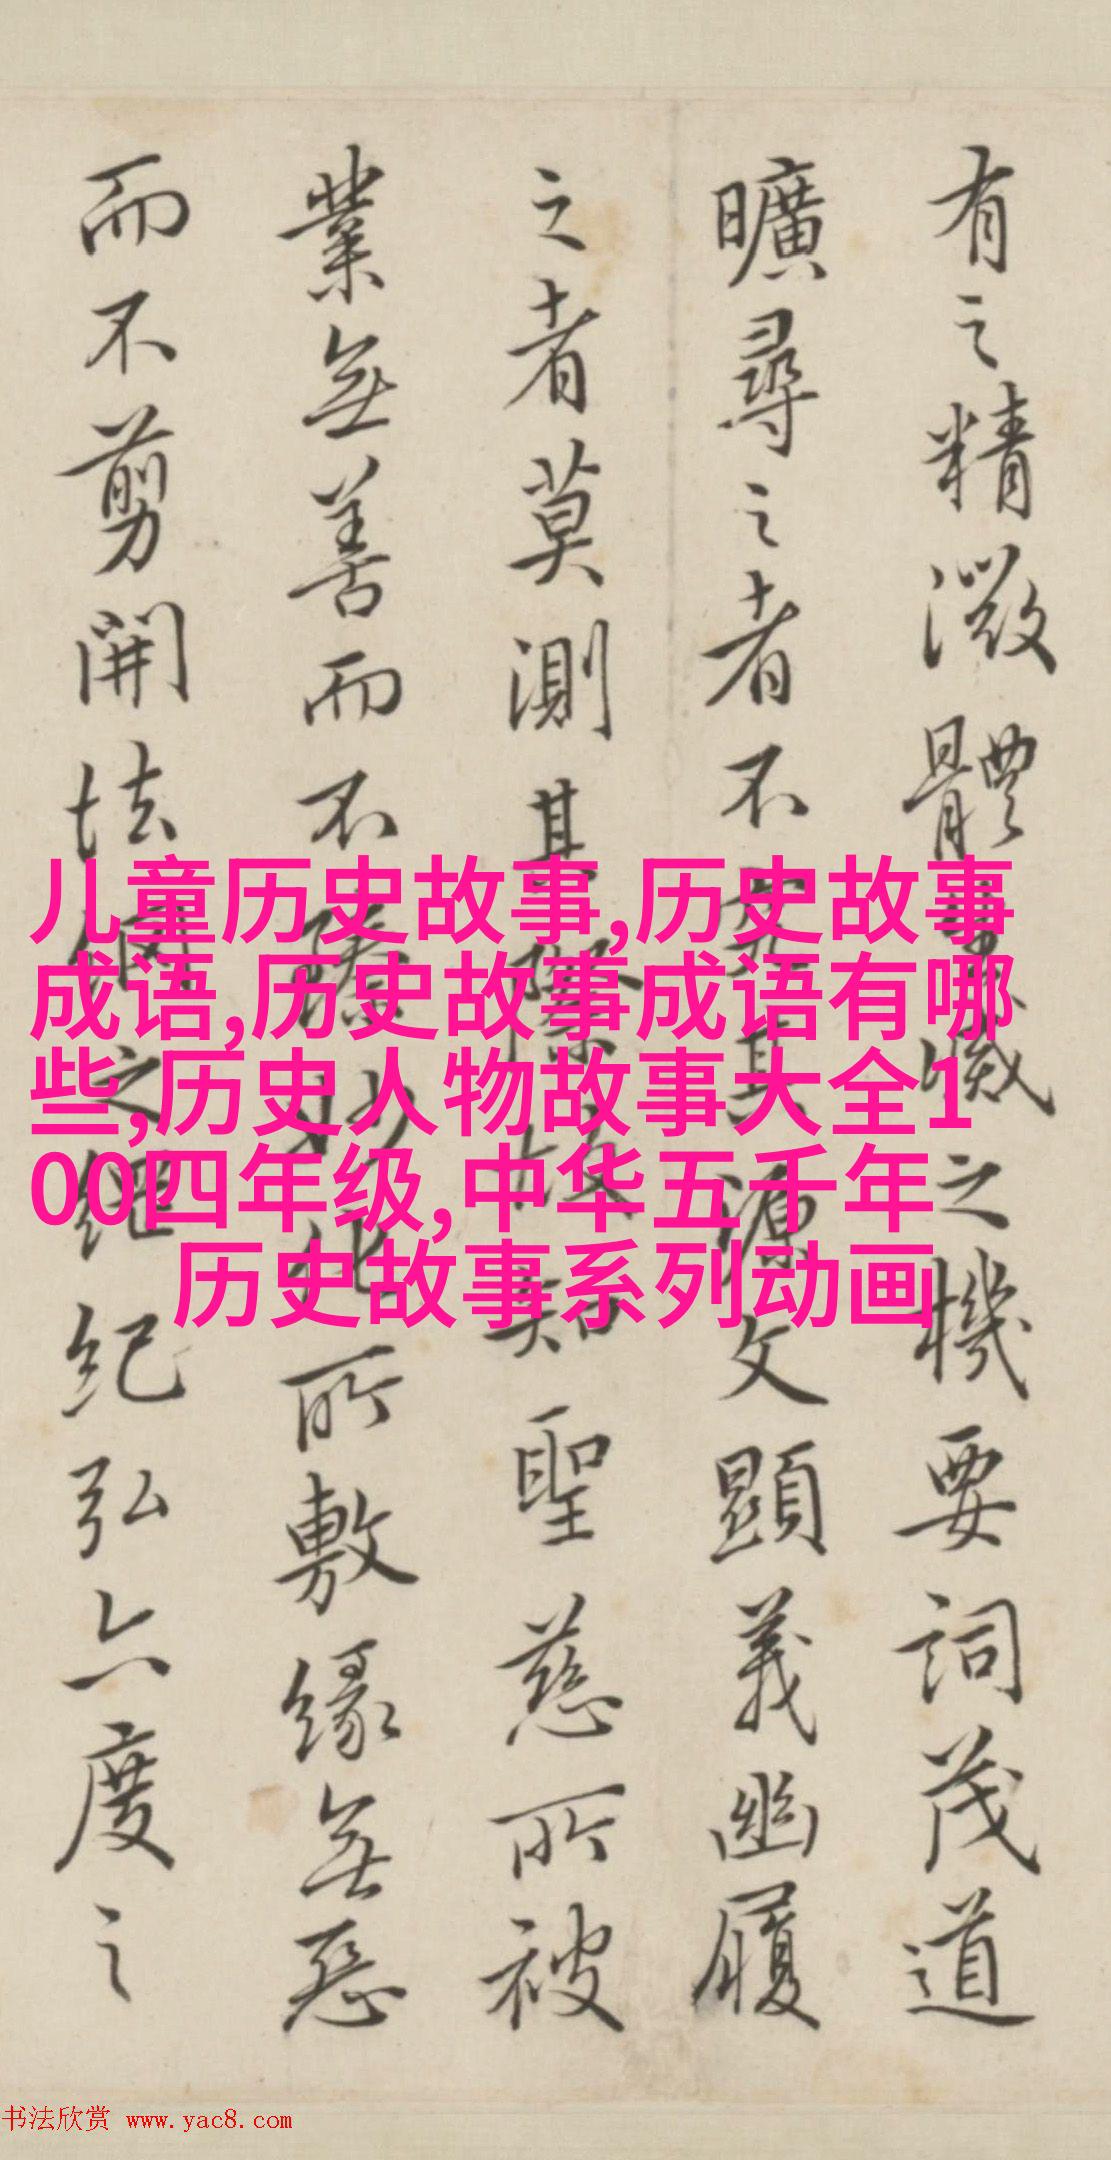 有之精微體滅之機要詞茂道
曠尋之者不究其源文顯義幽履
之者莫測其際故知聖慈所被
業無善而不臻妙化所敷緣無惡
而不剪開法網之綱紀弘六度之
儿童历史故事,历史故事
成语,历史故事成语有哪
些,历史人物故事大全1
00四年级,中华五千年
历史故事系列动画
书法欣赏 www.yac8.com